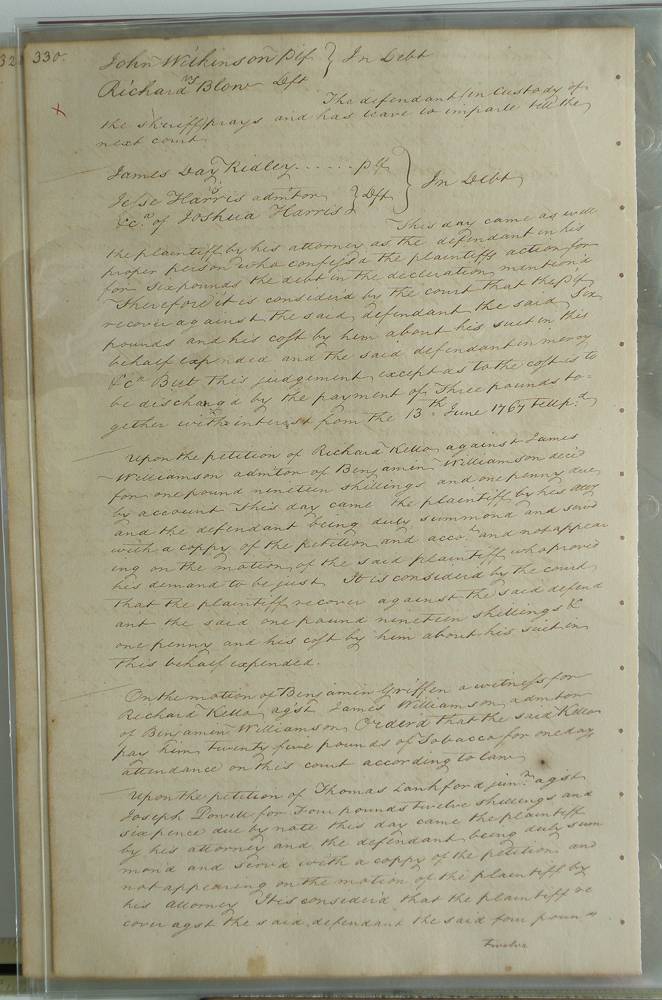 330.
John Wilkinson Plf } In Debt
vs
Richard Blow Dft
The defendant (in Custody of
the sheriff) prays and has leave to imparle till the
next court
James Day Ridley ...... plf } In Debt
vs
Jesse Harris admitor } Dft
&ca. of Joshua Harris
This day came as well
the plaintiff by his attorney as the defendant in his
proper person who confess'd the plaintiffs action for
for six pounds the debt in the declaration mention'd
Therefore it is consider'd by the court that the plf
recover against the said defendant the said Six
pounds and his cost by him about his suit in this
behalf expended and the said defendant in mercy
&ca But this judgement except as to the cost is to
be discharg'd by the payment of Three pounds to-
gether with interest from the 13th June 1767 till pd
Upon the petition of Richard Kello against James
Williamson admitor of Benjamin Williamson deced
for one pound nineteen shillings and one penny due
by account This day came the plaintiff by his atty
and the defendant being duly summond and servd
with a coppy of the petition and accot. and not appear
ing on the motion of the said plaintiff who proved
his demand to be just It is considerd by the court
that the plaintiff recover against the said defend
ant the said one pound nineteen shillings &
one penny and his cost by him about his suit in
this behalf expended.
On the motion of Benjamin Griffen a witness for
Richard Kello agst James Williamson admitor
of Benjamin Williamson Orderd that the said Kello
pay him twenty five pounds of Tobacco for one day
attendance on this court according to law
Upon the petition of Thomas Lankford junr. agst
Joseph Powell for Four pounds twelve shillings and
six pence due by note this day came the plaintiff
by his attorney and the defendant being duly sum
mond and servd with a coppy of the petition and
not appearing on the motion of the plaintiff by
his attorney It is considerd that the plaintiff re
cover agst the said defendant the said four pounds
twelve